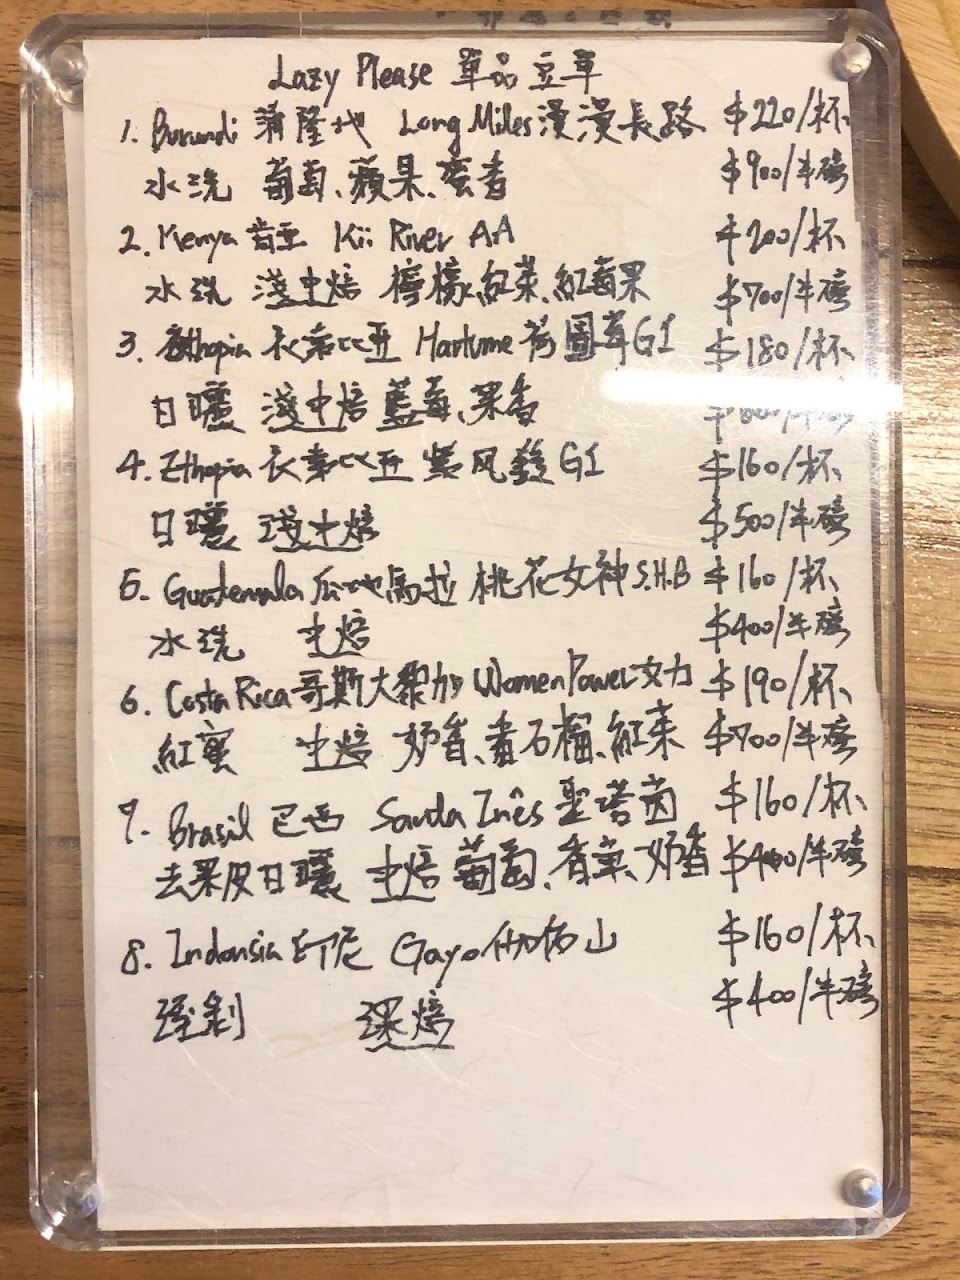 Lazy Please 單品豆單
1. Burundi 蒲隆地 Long Miles 漫漫長路 $220/杯
水洗 葡萄、蘋果、蜜香 $900/半磅
2. Kenya 肯亞 Kii River AA $200/杯
水洗 淺中焙 檸檬、紅茶、紅莓果 $700/半磅
3. 衣索比亞 Hartume 荷圖莓G1 $180/杯
日曬 淺中焙 藍莓、果香 /半磅
4. Ethopia 衣索比亞 紫风鈴G1 $160/杯
日曬 淺中焙 $500/半磅
5. Guatemala 瓜地馬拉 桃花女神 S.H.B $160/杯
水洗 中焙 $400/半磅
6. Costa Rica 哥斯大黎加 Women Power 女力 $190/杯
紅蜜 中焙 奶香、番石榴、紅茶 $700/半磅
7. Brasil 巴西 Santa Inês 聖塔茵 $160/杯
去果皮日曬 中焙 葡萄、香草、奶香 $400/半磅
8. Indonsia 印尼 Gayo 伽佑山 $160/杯
溼剝 深焙 $400/半磅